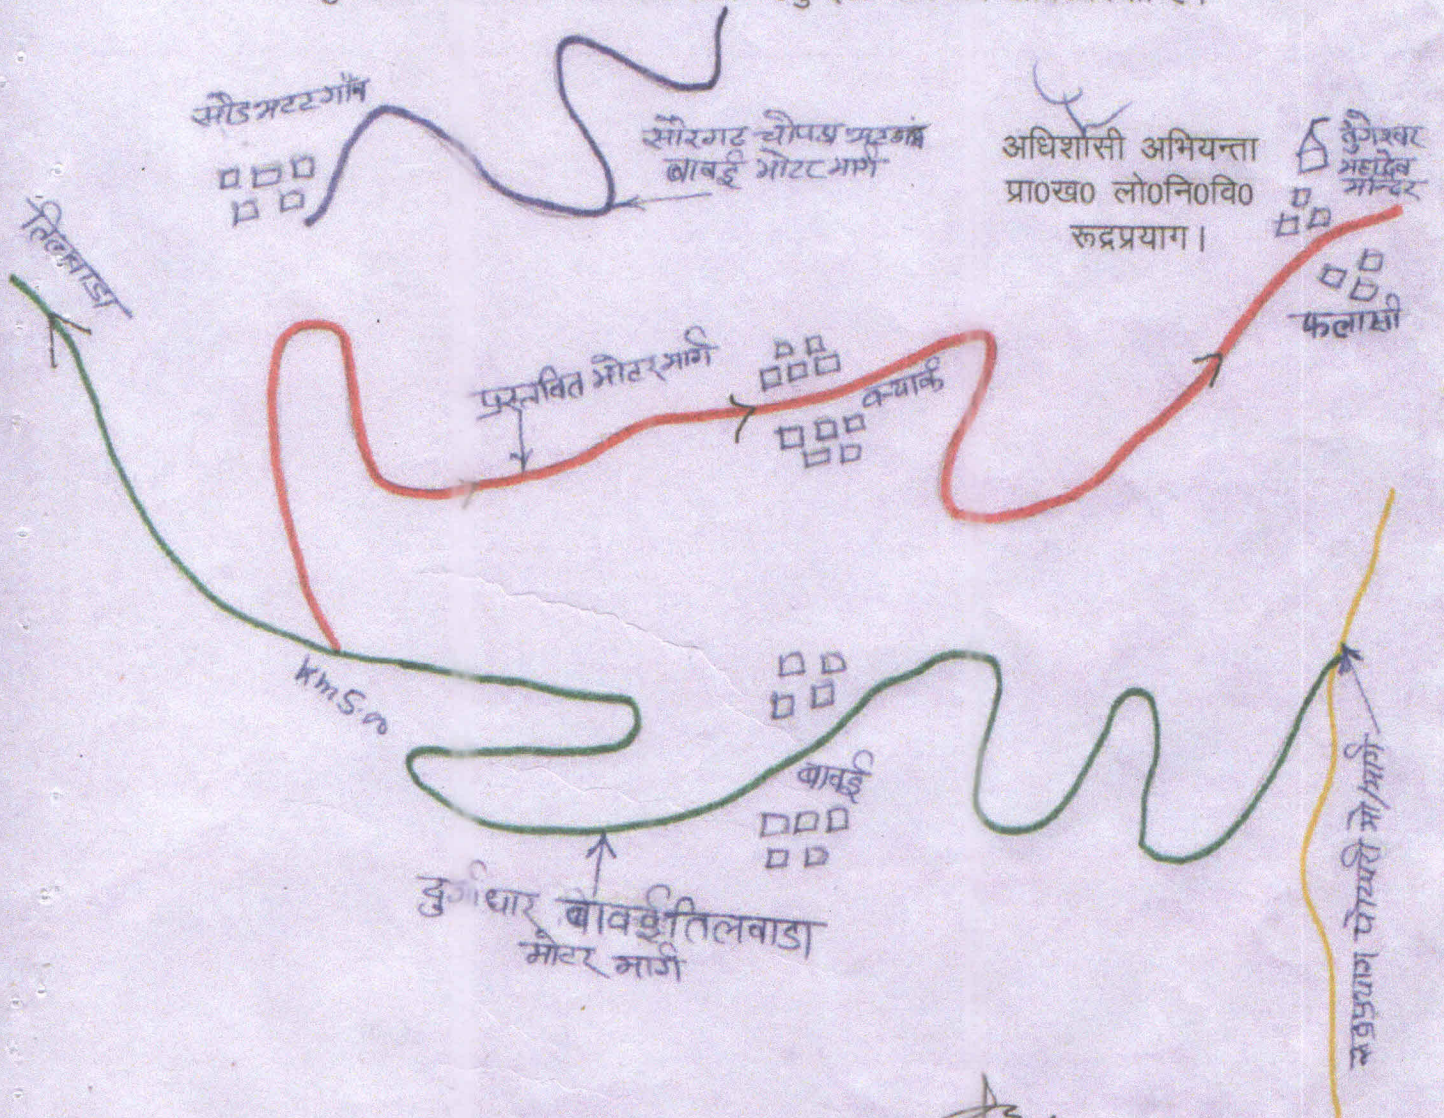 सौडभटटगॉव
सौरगट चोपडा भटटगांव
बावई मोटर मार्ग
अधिशासी अभियन्ता
प्रा0ख0 लो0नि0वि0
रूद्रप्रयाग।
तुंगेश्वर
महादेव
मन्दिर
तिलवाडा
फलासी
प्रस्तवित मोटर मार्ग
क्यार्क
Km 5.00
बावई
दुर्गाधार बावई तिलवाडा
मोटर मार्ग
रूद्रप्रयाग पोखरी मो/मार्ग